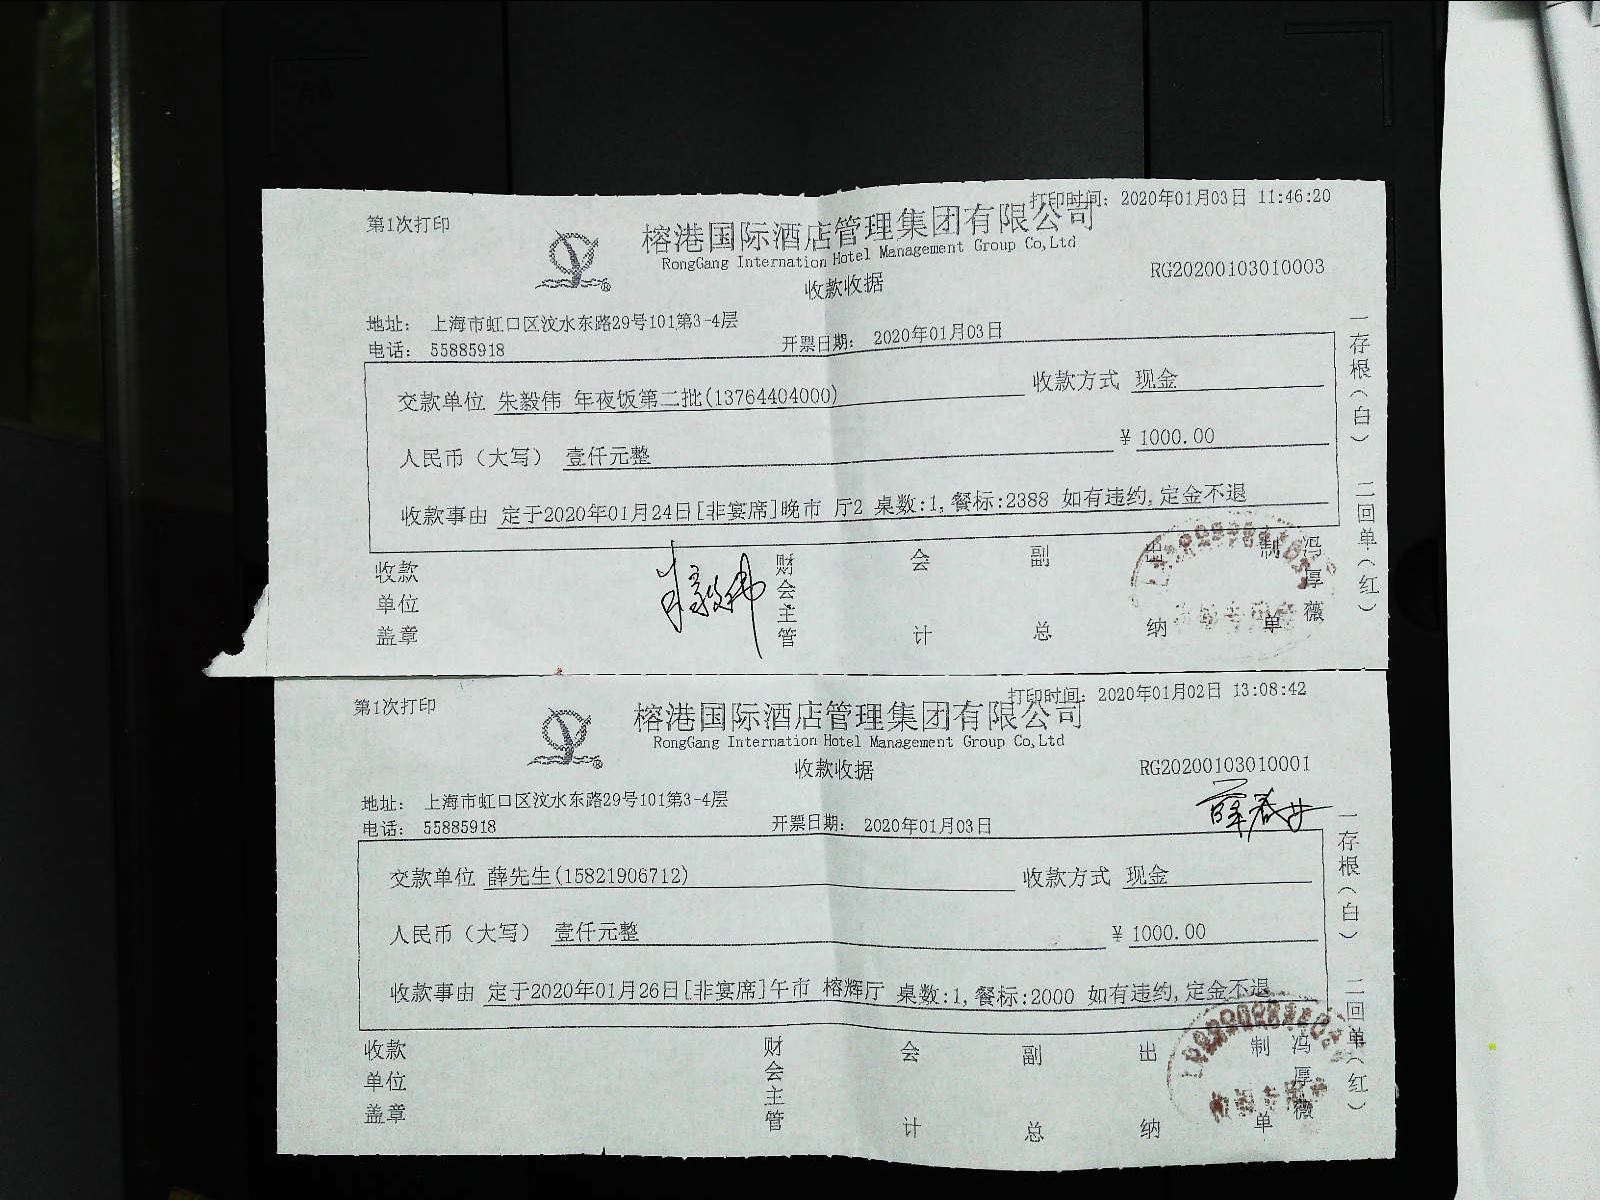 第1次打印
打印时间: 2020年01月03日 11:46:20
榕港国际酒店管理集团有限公司
RongGang Internation Hotel Management Group Co,Ltd
收款收据
RG20200103010003
地址: 上海市虹口区汶水东路29号101第3-4层
电话: 55885918
开票日期: 2020年01月03日
交款单位 朱毅伟 年夜饭第二批(13764404000)
收款方式 现金
人民币（大写） 壹仟元整
¥ 1000.00
收款事由 定于2020年01月24日[非宴席]晚市 厅2 桌数:1,餐标:2388 如有违约,定金不退
一存根（白） 二回单（红）
收款单位盖章
朱毅伟
财会主管
会计
副总
出纳
制单
冯厚薇
第1次打印
打印时间: 2020年01月02日 13:08:42
榕港国际酒店管理集团有限公司
RongGang Internation Hotel Management Group Co,Ltd
收款收据
RG20200103010001
地址: 上海市虹口区汶水东路29号101第3-4层
电话: 55885918
开票日期: 2020年01月03日
交款单位 薛先生(15821906712)
收款方式 现金
人民币（大写） 壹仟元整
¥ 1000.00
收款事由 定于2020年01月26日[非宴席]午市 榕辉厅 桌数:1,餐标:2000 如有违约,定金不退
一存根（白） 二回单（红）
收款单位盖章
财会主管
会计
副总
出纳
制单
冯厚薇